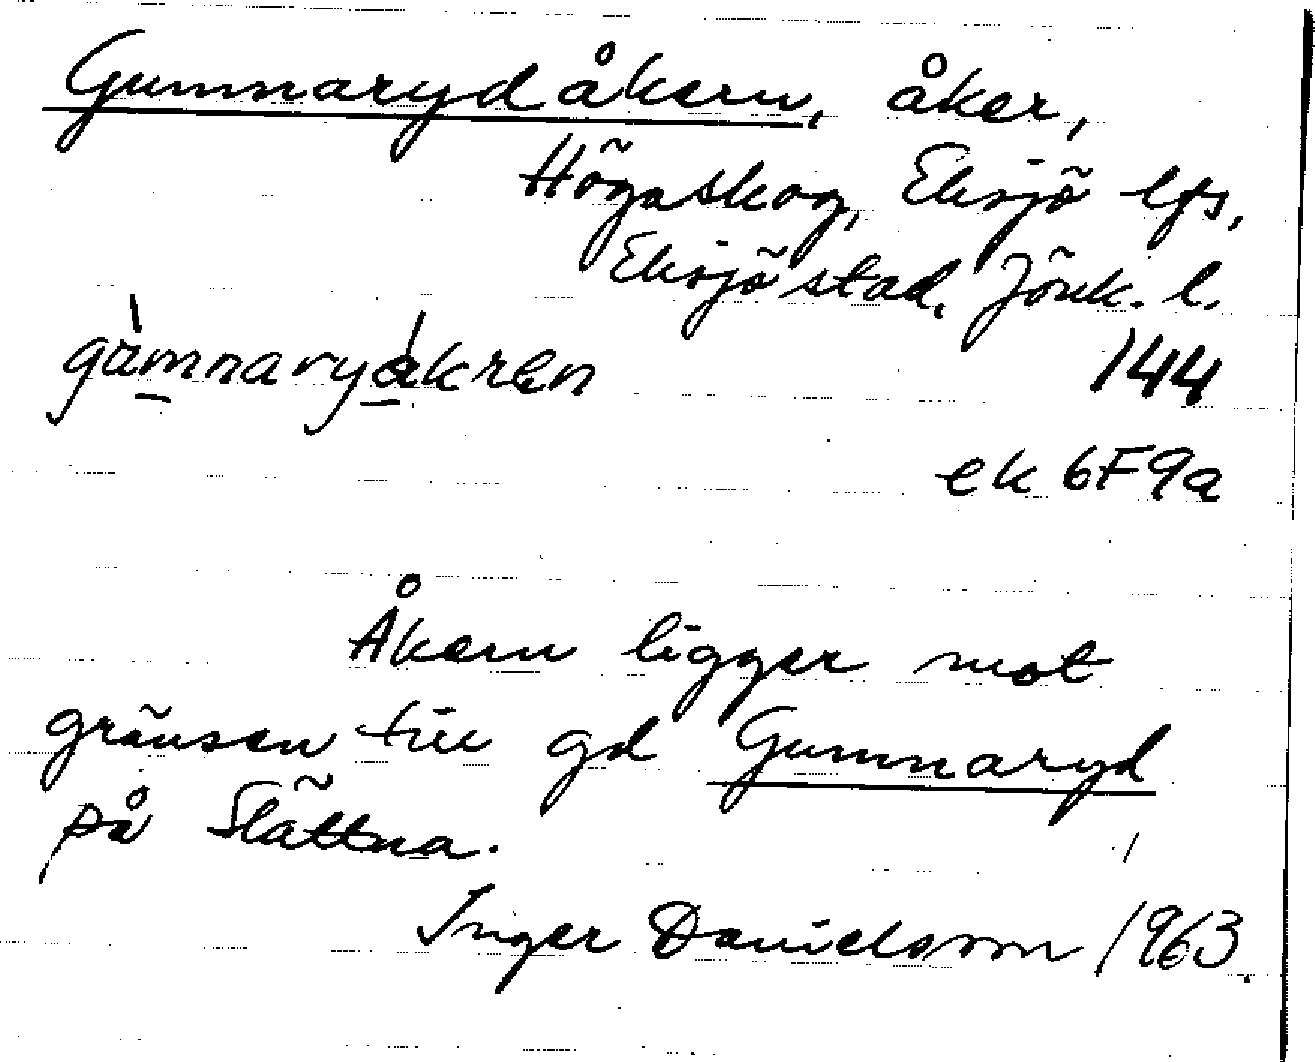 Gummarydåkern, åker,
Högaskog, Eksjö lfs,
Eksjö stad, Jönk. l.
gùmnaryákren 144
ek 6F9a
Åkern ligger mot
gränsen till gd Gummaryd
på Slättna.
Inger Danielsson 1963.